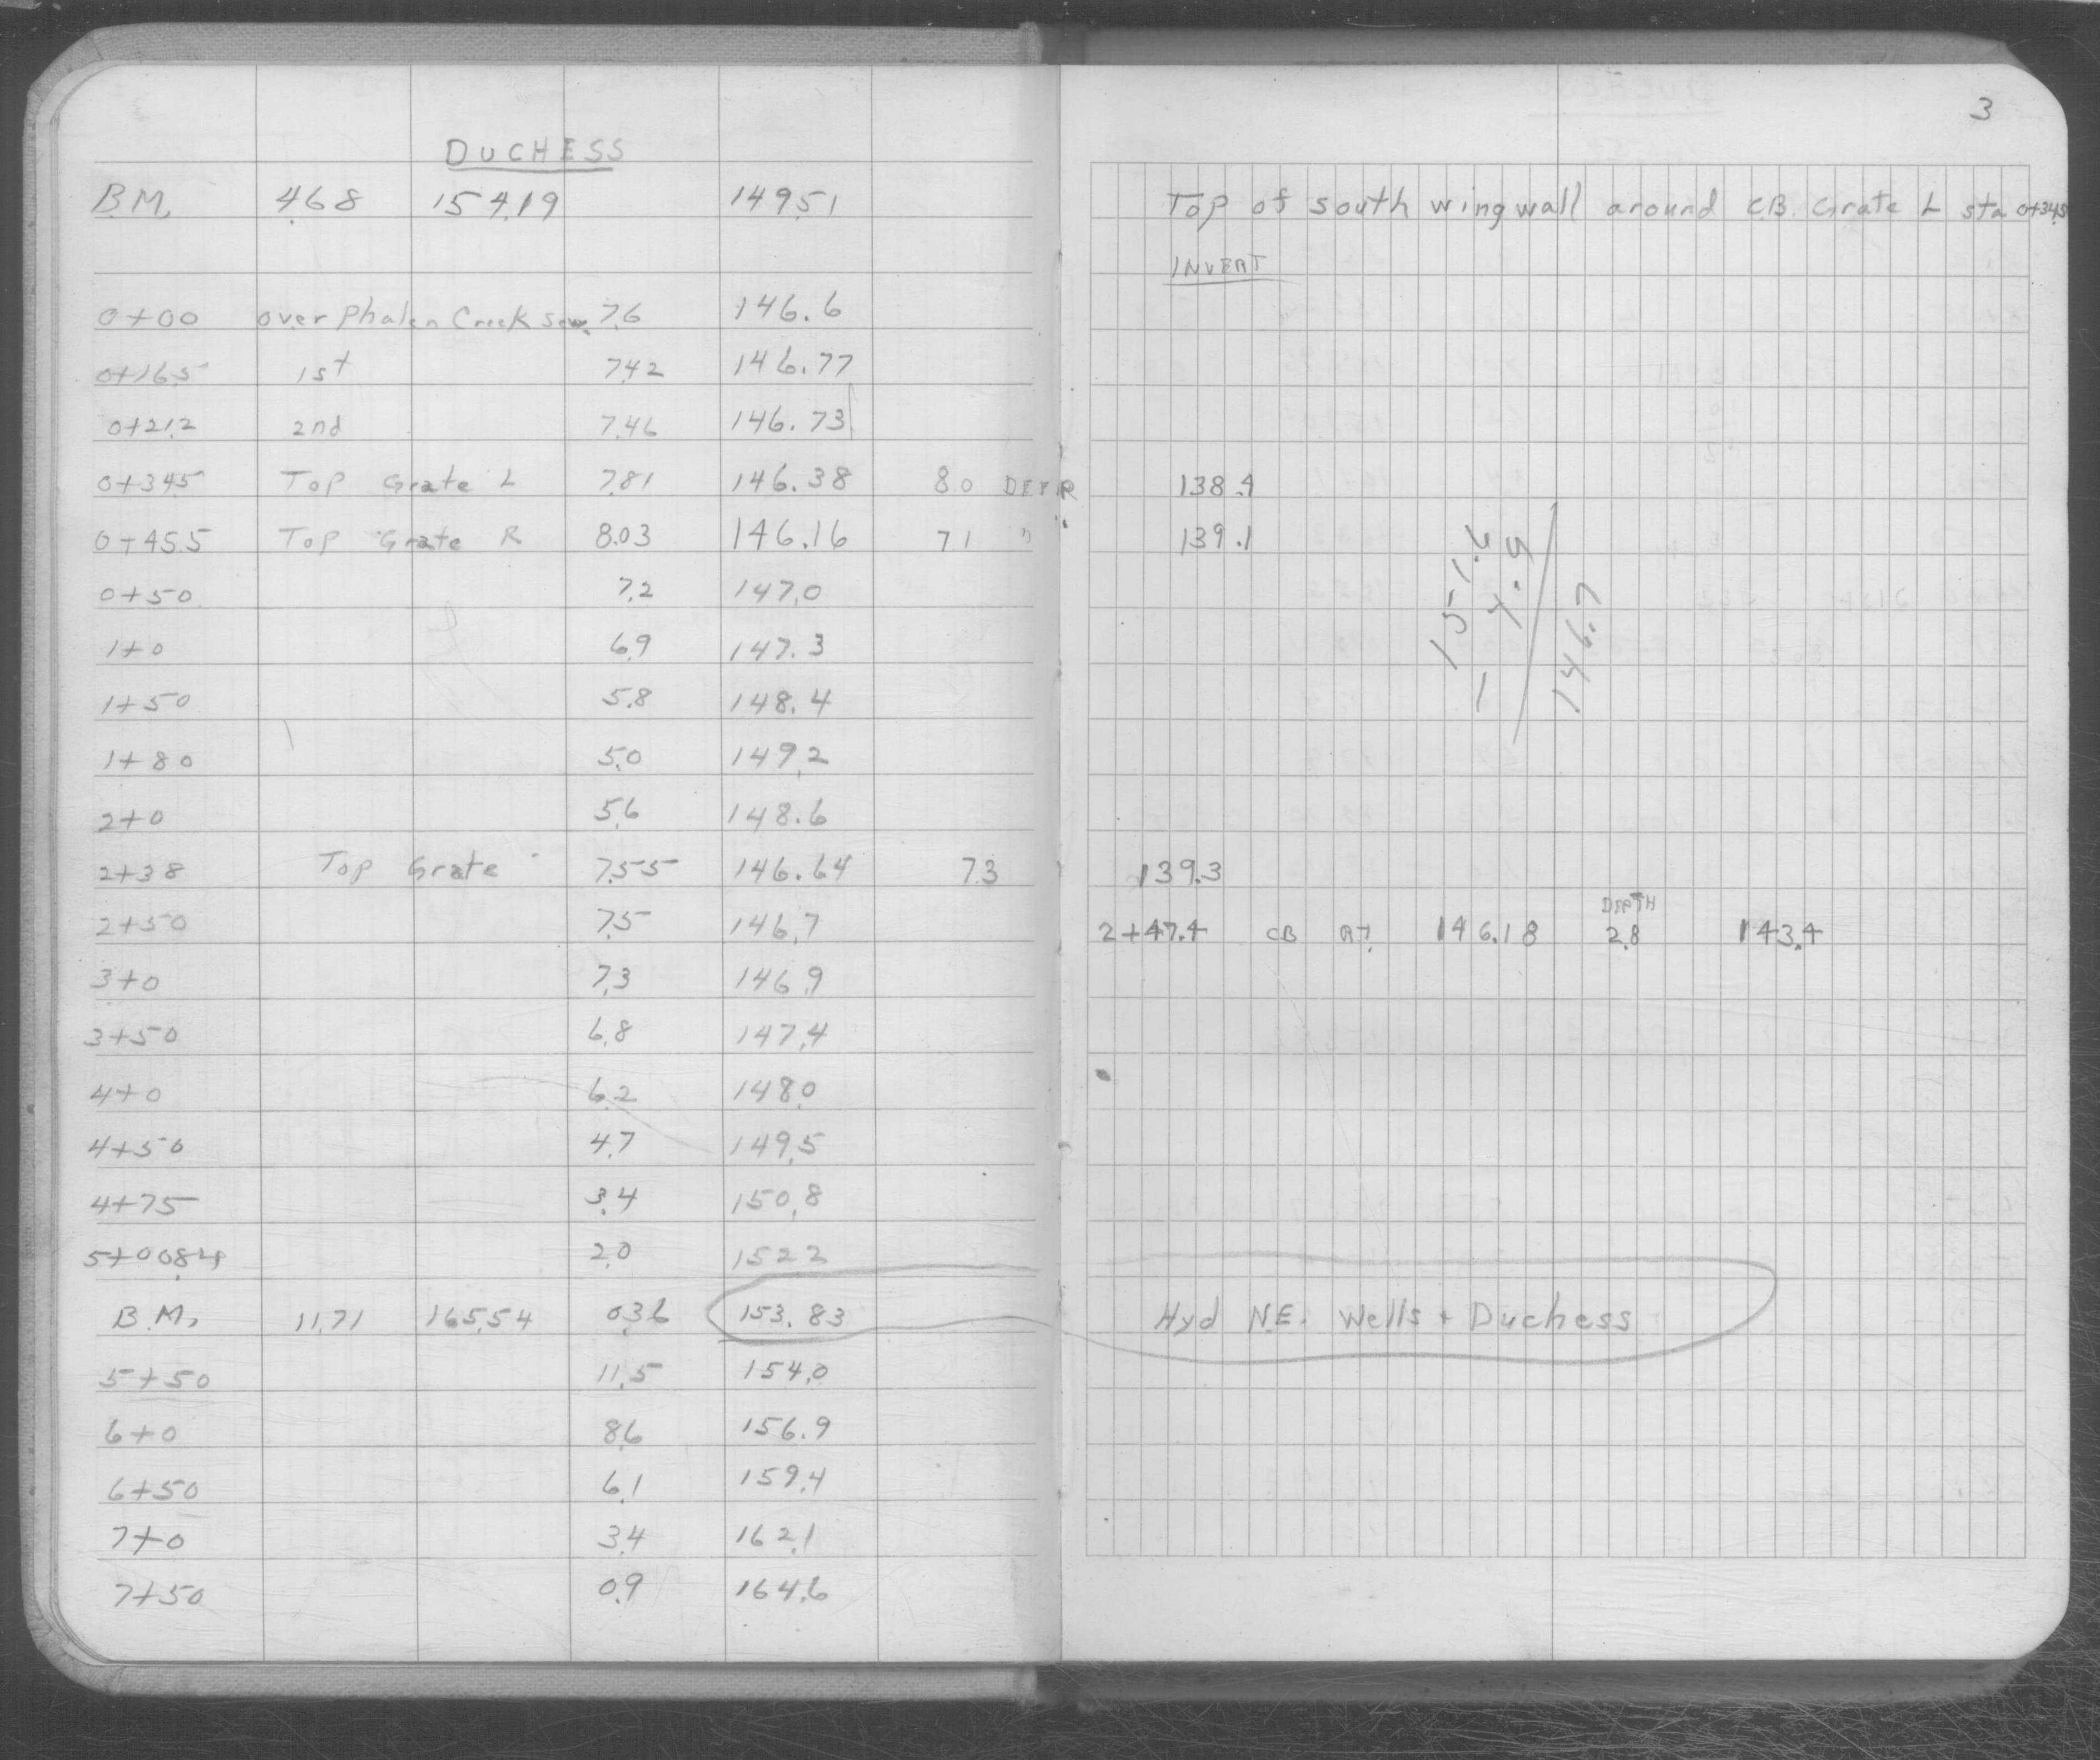 3
DUCHESS
B.M. 4.68 154.19 149.51 Top of south wing wall around C.B. Grate L sta 0+34.5
INVERT
0+00 over Phalen Creek sew. 7.6 146.6
0+16.5 1st 7.42 146.77
0+21.2 2nd 7.46 146.73
0+34.5 Top Grate L 7.81 146.38 8.0 DEEP 138.4
0+45.5 Top Grate R 8.03 146.16 7.1 " 139.1
0+50 7.2 147.0
1+0 6.9 147.3
1+50 5.8 148.4
1+80 5.0 149.2
2+0 5.6 148.6
2+38 Top Grate 7.55 146.64 7.3 139.3
2+50 7.5 146.7
DEPTH
2+47.4 CB RT. 146.18 2.8 143.4
3+0 7.3 146.9
3+50 6.8 147.4
4+0 6.2 148.0
4+50 4.7 149.5
4+75 3.4 150.8
5+008.4 2.0 152.2
B.M. 11.71 165.54 0.36 153.83 Hyd N.E. Wells + Duchess
5+50 11.5 154.0
6+0 8.6 156.9
6+50 6.1 159.4
7+0 3.4 162.1
7+50 0.9 164.6
151.6
- 4.9
146.7